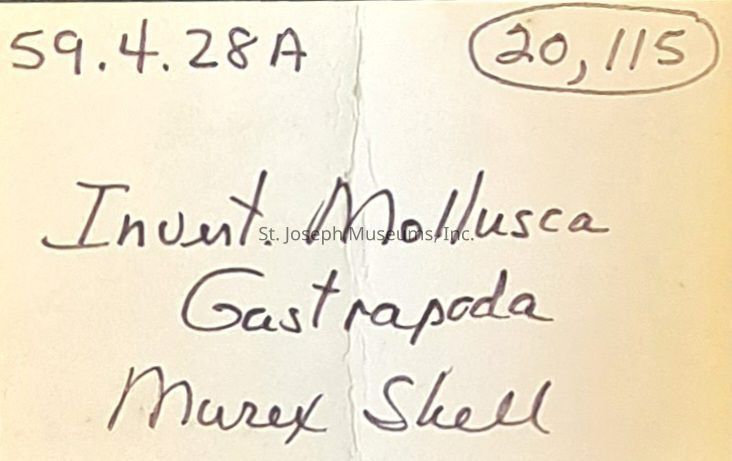 59.4.28A 20,115
Invert. Mollusca
St. Joseph Museums, Inc.
Gastrapoda
Murex Shell